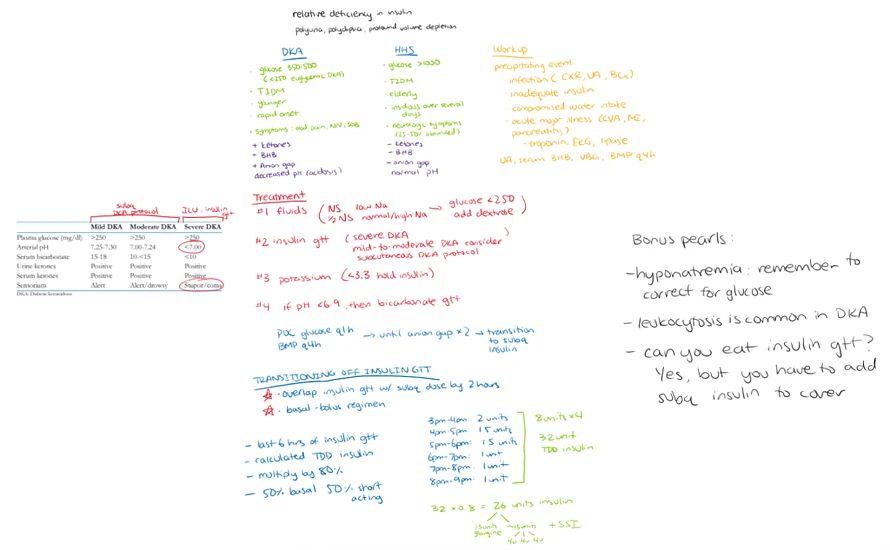 relative deficiency in insulin
polyuria, polydipsia, profound volume depletion
DKA
· glucose 350-500
(<250 euglycemic DKA)
· T1DM
· younger
· rapid onset
· symptoms: abd pain, N/V, SOB
+ ketones
- BHB
+ Anion gap
decreased pH (acidosis)
HHS
· glucose >1000
· T2DM
· elderly
· insidious over several
days
· neurologic symptoms
(25-50% obtunded)
- ketones
- BHB
- anion gap
normal pH
Workup
precipitating event
· infection (CXR, UA, BCx)
· inadequate insulin
· compromised water intake
· acute major illness (CVA, MI,
pancreatitis)
- troponin, EKG, lipase
UA, serum BHB, VBG, BMP q4h
subq
DKA protocol
ICU, insulin
gtt
Mild DKA Moderate DKA Severe DKA
Plasma glucose (mg/dl) >250 >250 >250
Arterial pH 7.25-7.30 7.00-7.24 <7.00
Serum bicarbonate 15-18 10-<15 <10
Urine ketones Positive Positive Positive
Serum ketones Positive Positive Positive
Sensorium Alert Alert/drowsy Stupor/coma
DKA: Diabetic ketoacidosis
Treatment
#1 fluids (NS low Na → glucose <250
½ NS normal/high Na add dextrose)
#2 insulin gtt (severe DKA
mild-to-moderate DKA consider
subcutaneous DKA protocol)
#3 potassium (<3.3 hold insulin)
#4 if pH <6.9, then bicarbonate gtt
POC glucose q1h → until anion gap x2 → transition
BMP q4h to subq
insulin
TRANSITIONING OFF INSULIN GTT
· overlap insulin gtt w/ subq dose by 2 hours
· basal-bolus regimen
- last 6 hrs of insulin gtt
- calculated TDD insulin
- multiply by 80%
- 50% basal 50% short
acting
3pm-4pm: 2 units
4pm-5pm: 1.5 units
5pm-6pm: 1.5 units
6pm-7pm: 1 unit
7pm-8pm: 1 unit
8pm-9pm: 1 unit
8 units x4
32 unit
TDD insulin
32 × 0.8 = 26 units insulin
13 units
glargine
13 units
4u 4u 4u
+ SSI
Bonus pearls:
- hyponatremia: remember to
correct for glucose
- leukocytosis is common in DKA
- can you eat insulin gtt?
Yes, but you have to add
subq insulin to cover